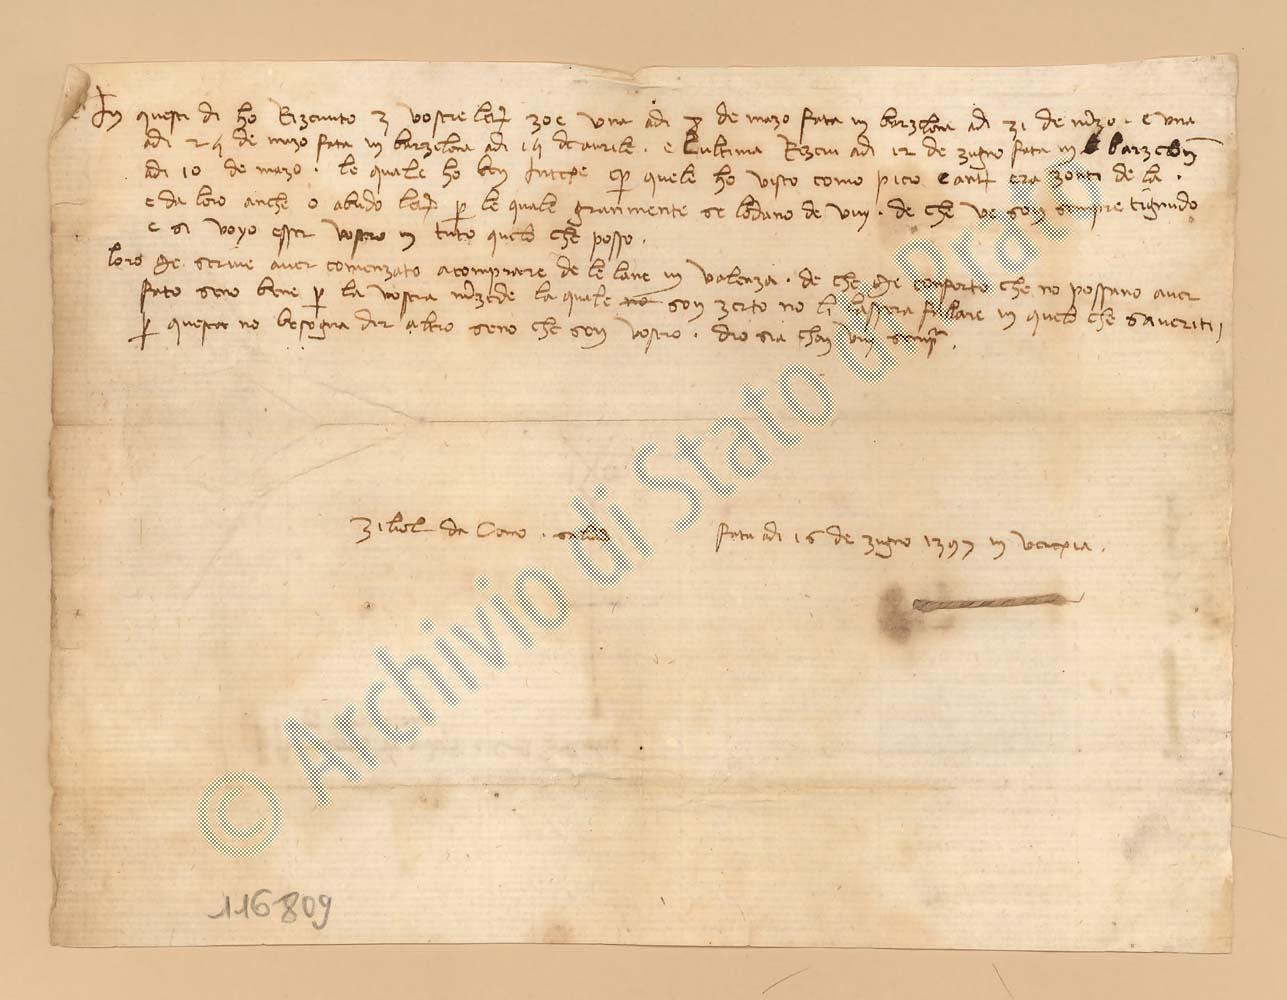 In questi di ho rizeuuto 3 vostre letere zoe una adi 7 de mazo fata in barzelona adi 31 de marzo. e una
adi 24 de mazo fata in barzelona adi 14 de aurile. e l ultima rezeui adi 12 de zugno fata in barzelona
adi 10 de mazo. le quale ho ben intexe per quele ho visto como pico era zonti de la.
e da loro anche o abudo letere per le quale granmente se lodano de vuy. de che ve son sempre tignudo
e si voyo esser vostro in tuto quelo che posso.
loro me scriue auer comenzato acomprare de le lane in valenza. de che me conforto che no possano auer
fato seno bene per la vostra merzede la quale son zerto no li lassera falare in quelo che saueriti
per questa no besogna dir altro seno che son vostro. dio sia chon vuy sempre.
Ziliol da Como. salute
fata adi 16 de zugno 1397 in venexia.
116809
© Archivio di Stato di Prato